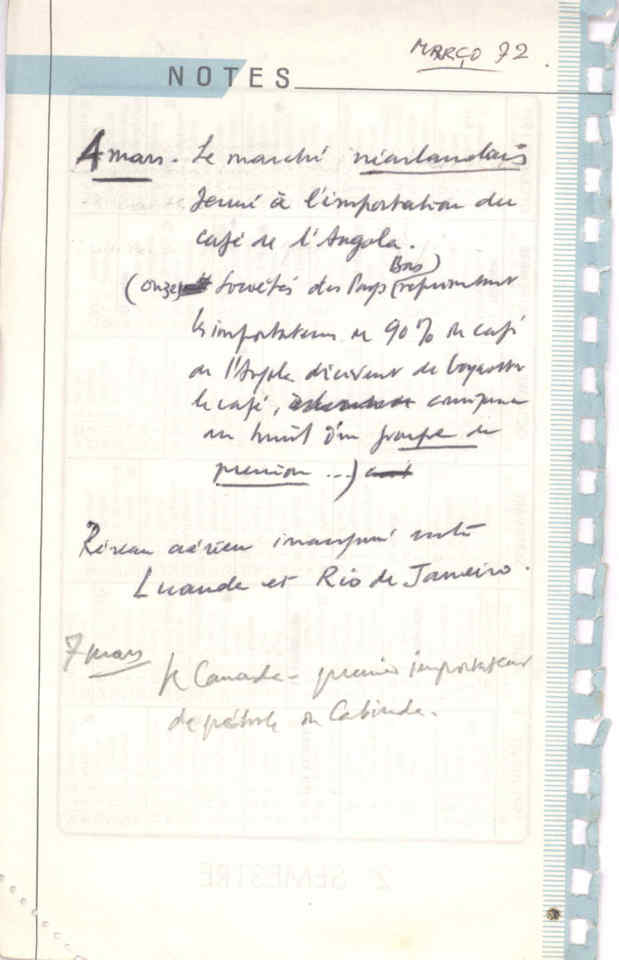 MARÇO 72.
NOTES
4 mars - Le marché néerlandais
fermé à l'importation du
café de l'Angola.
(onze) Sociétés des Pays Bas) représentant
les importateurs de 90% du café
de l'Angola décident de boycotter
le café,
au suite d'un groupe de
pression ...)
Réseau aérien inauguré entre
Luanda et Rio de Janeiro.
7 mars
le Canada - premier importateur
de pétrole de Cabinda.
2º SEMESTRE